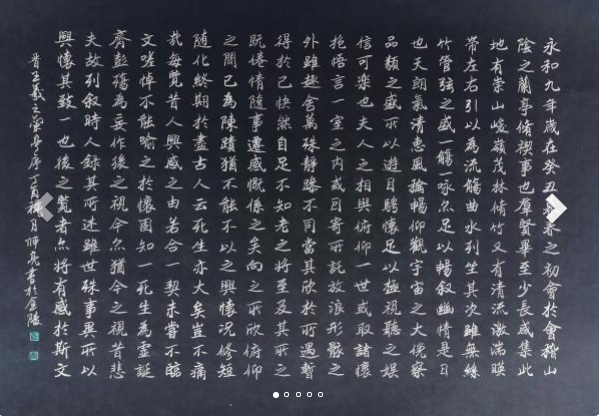 永和九年歲在癸丑春之初會於會稽山
陰之蘭亭脩禊事也羣賢畢至少長咸集此
地有崇山峻嶺茂林脩竹又有清流激湍暎
帶左右引以為流觴曲水列坐其次雖無絲
竹管弦之盛一觴一詠亦足以暢叙幽情是日
也天朗氣清惠風和暢仰觀宇宙之大俛察
品類之盛所以遊目騁懷足以極視聽之娛
信可樂也夫人之相與俯仰一世或取諸懷
抱悟言一室之內或因寄所託放浪形骸之
外雖趣舍萬殊靜躁不同當其欣於所遇暫
得於己快然自足不知老之將至及其所之
既倦情隨事遷感慨係之矣向之所欣俯仰
之間已為陳蹟猶不能不以之興懷況修短
隨化終期於盡古人云死生亦大矣豈不痛
哉每覽昔人興感之由若合一契未嘗不臨
文嗟悼不能喻之於懷固知一死生為虛誕
齊彭殤為妄作後之視今亦猶今之視昔悲
夫故列叙時人錄其所述雖世殊事異所以
興懷其致一也後之覽者亦將有感於斯文
晋王羲之蘭亭序丁酉月書於金陵